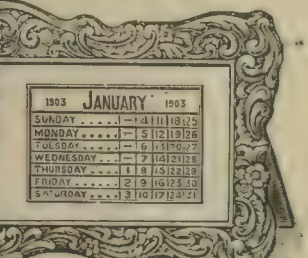 1903 JANUARY 1903
SUNDAY ..... – 4 11 18 25
MONDAY ..... – 5 12 19 26
TUESDAY ..... – 6 13 20 27
WEDNESDAY ..... – 7 14 21 28
THURSDAY ..... 1 8 15 22 29
FRIDAY ..... 2 9 16 23 30
SATURDAY ..... 3 10 17 24 31